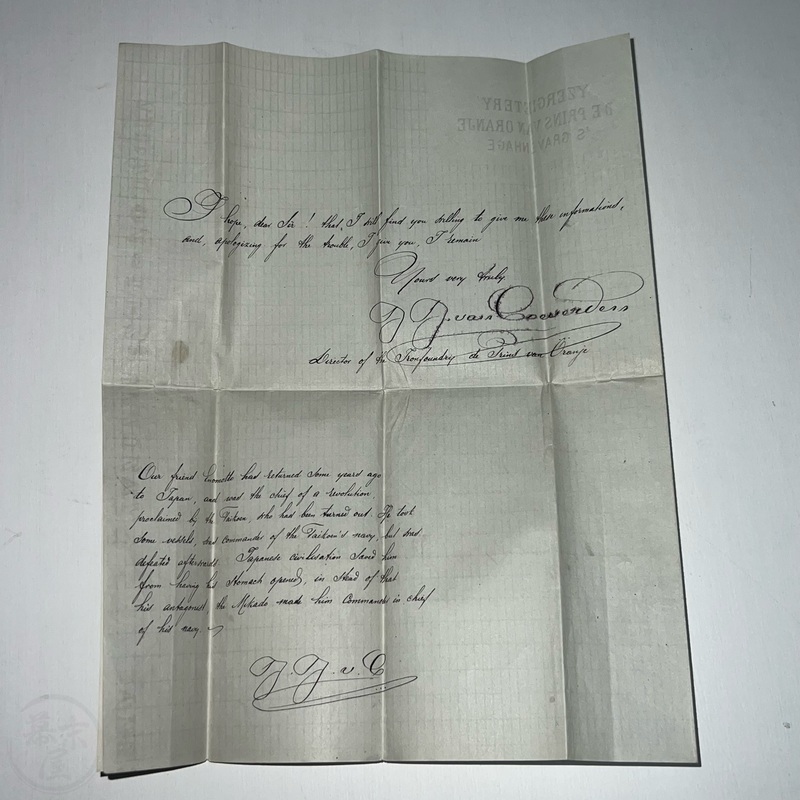 YZERGIETERY
DE PRINS VAN ORANJE
'S GRAVENHAGE
I hope, dear Sir! that, I will find you willing to give me these informations,
and, apologizing for the trouble, I give you, I remain
Yours very truly
van Coeverden
Director of the Ironfoundry de Prins van Oranje
Our friend had returned some years ago
to Japan, and was the chief of a revolution
proclaimed by the Taikoun, who had been turned out. He took
some vessels, was commander of the Taikoun's navy, but was
defeated afterwards. Japanese civilisation saved him
from having his stomach opened, in stead of that
his antagonist the Mikado made him Commander in chief
of his navy.
v. C